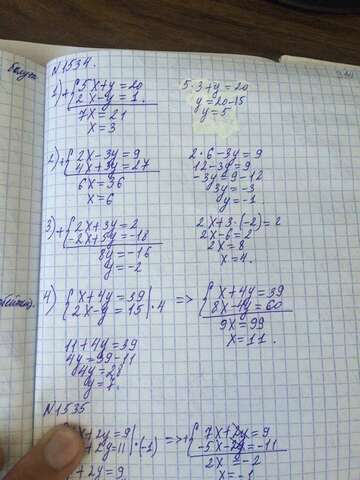 N1534.
1) + { 5x+y=20
2x-y=1.
7x=21
x=3
5·3+y=20
y=20-15
y=5
2) + { 2x-3y=9
4x+3y=27
6x=36
x=6
2·6-3y=9
12-3y=9
-3y=9-12
3y=-3
y=-1
3) + { 2x+3y=2
-2x+5y=-18
8y=-16
y=-2
2x+3·(-2)=2
2x-6=2
2x=8
x=4.
4) { x+4y=39
2x-y=15 |·4
=> { x+4y=39
8x-4y=60
9x=99
x=11.
11+4y=39
4y=39-11
4y=28
y=7.
N1535
x+2y=9
+2y=11 |·(-1)
+2y=9
=> + { 7x+2y=9
-5x-2y=-11
2x=-2
x=-1